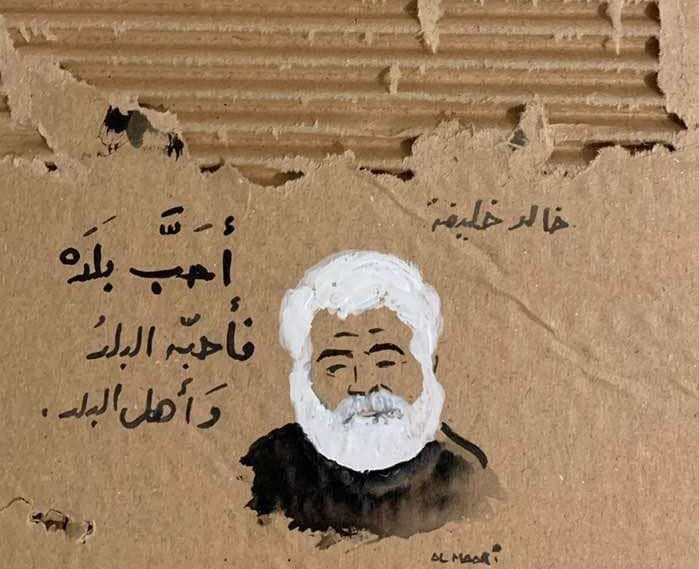 خالد خليفة
أَحَبَّ بَلَدَه
فأحبّه البلدُ
وَأهل البلد.
AL MAARi